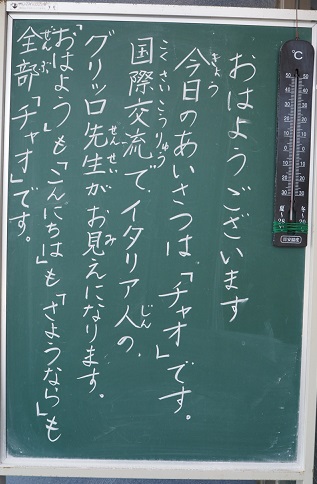 おはようございます
今日のあいさつは、「チャオ」です。
国際交流で、イタリア人の、
グリッロ先生がお見えになります。
「おはよう」も「こんにちは」も「さようなら」も
全部「チャオ」です。
きょう
こくさいこうりゅう
じん
せんせい
み
ぜんぶ
℃
50 50
40 40
30 30
20 20
10 10
0 0
10 10
20 20
30 30
夏 冬